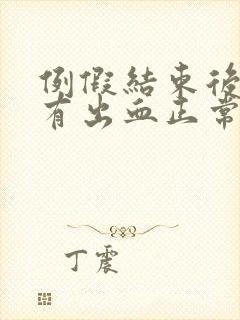 例假結束後
有出血正常
丁震